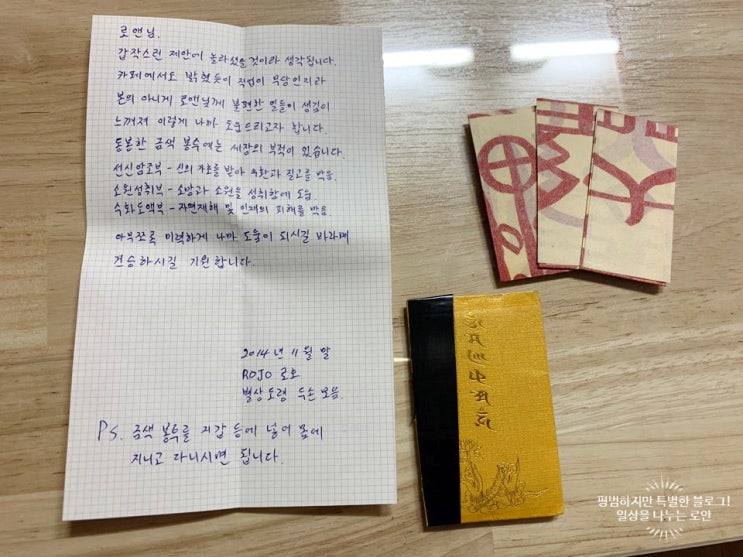 로앤님.
갑작스런 제안에 놀라셨을것이라 생각됩니다.
카페에서도 밝혔듯이 직업이 무당인지라
본의 아니게 로앤님께 불편한 일들이 생김이
느껴져 이렇게 나마 도움드리고자 합니다.
동봉한 금색 봉숙에는 세장의 부적이 있습니다.
선신암조부 - 신의 가호를 받아 우환과 질고를 막음.
소원성취부 - 소망과 소원을 성취함에 도움.
수화도액부 - 자연재해 및 인재의 피해를 막음.
아무쪼록 미력하게 나마 도움이 되시길 바라며
건승하시길 기원합니다.
2014년 11월 말
ROJO 로호
별상도령 두손모음.
Ps. 금색 봉투를 지갑 등에 넣어 몸에
지니고 다니시면 됩니다.
평범하지만 특별한 블로그!
일상을 나누는 로안